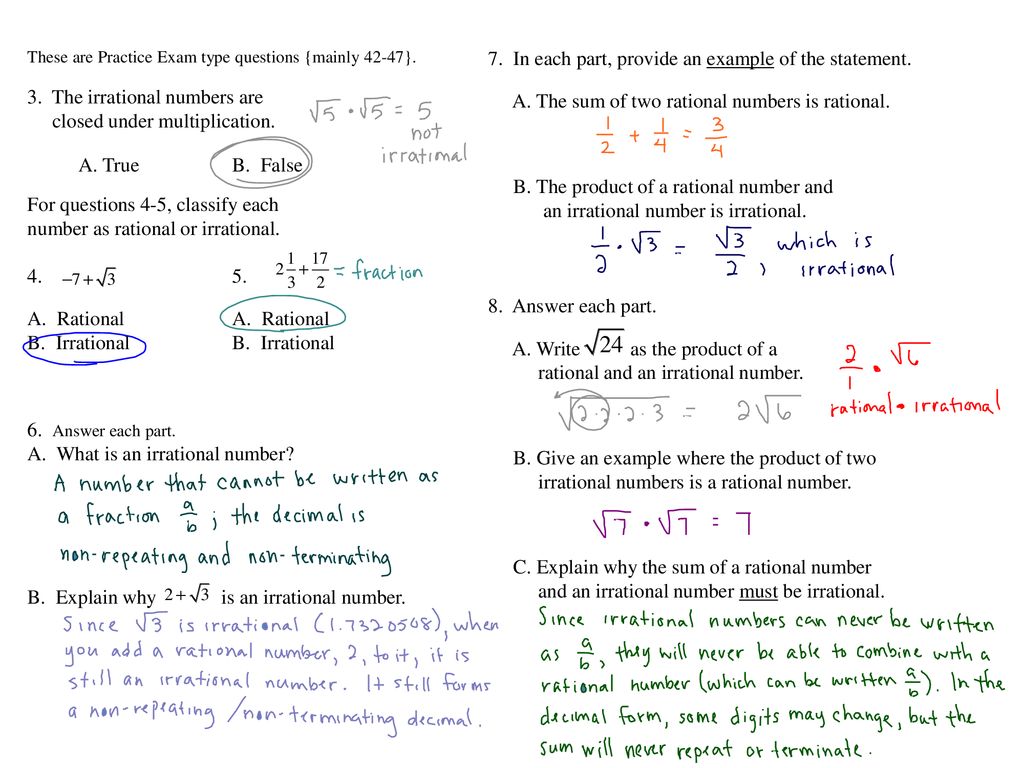 These are Practice Exam type questions {mainly 42-47}.
3. The irrational numbers are
closed under multiplication.
√5 · √5 = 5
not
irrational
A. True B. False
For questions 4-5, classify each
number as rational or irrational.
4. −7+√3 5. 2 1/3 + 17/2 = fraction
A. Rational A. Rational
B. Irrational B. Irrational
6. Answer each part.
A. What is an irrational number?
A number that cannot be written as
a fraction a/b ; the decimal is
non-repeating and non-terminating
B. Explain why 2+√3 is an irrational number.
Since √3 is irrational (1.7320508), when
you add a rational number, 2, to it, it is
still an irrational number. It still forms
a non-repeating /non-terminating decimal.
7. In each part, provide an example of the statement.
A. The sum of two rational numbers is rational.
1/2 + 1/4 = 3/4
B. The product of a rational number and
an irrational number is irrational.
1/2 · √3 = √3/2, which is
irrational
8. Answer each part.
A. Write √24 as the product of a
rational and an irrational number.
2/1 · √6
rational · irrational
√2·2·2·3 = 2√6
B. Give an example where the product of two
irrational numbers is a rational number.
√7 · √7 = 7
C. Explain why the sum of a rational number
and an irrational number must be irrational.
Since irrational numbers can never be written
as a/b, they will never be able to combine with a
rational number (which can be written a/b). In the
decimal form, some digits may change, but the
sum will never repeat or terminate.